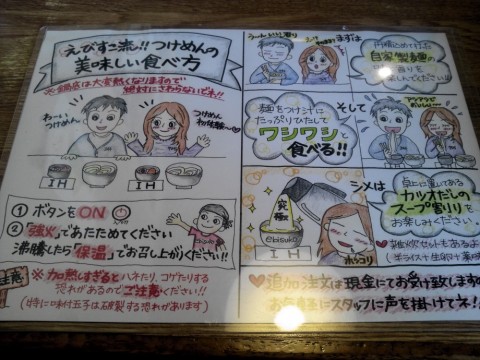 えびすこ流!! つけめんの
美味しい食べ方
※鍋底は大変熱くなりますので
絶対にさわらないで下さい!!
わーいつけめん
つけめん
初体験〜♡
IH
IH
①ボタンをON
②"強火"であたためてください
沸騰したら「保温」でお召し上がりください!!
注意
※加熱しすぎるとハネたり、コゲたりする
恐れがあるのでご注意ください!!
(特に味付玉子は破裂する恐れがあります)
まずは
円精込めて打った
自家製麺の
香りを
楽しんでください
麺をつけ汁に
たっぷりひたして
ワシワシと
食べる!!
そして
究極
ebisuko
IH
ホッコリ
シメは
卓上に置いてある
カツオだしの
スープ割りを
お楽しみください
雑炊セットもあるよ
♥追加注文は現金にてお受け致します
お気軽にスタッフに声を掛けてネ!